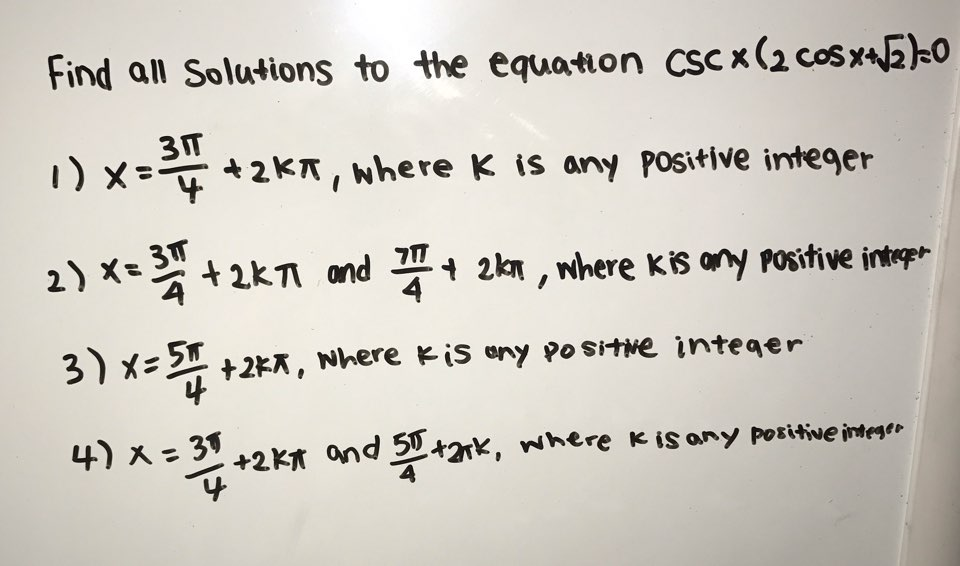 Find all Solutions to the equation CSC x (2 cos x+√2)=0
1) x = 3π/4 + 2kπ, where K is any positive integer
2) x = 3π/4 + 2kπ and 7π/4 + 2kπ, where k is any positive integer
3) x = 5π/4 + 2kπ, where k is any positive integer
4) x = 3π/4 + 2kπ and 5π/4 + 2πk, where k is any positive integer